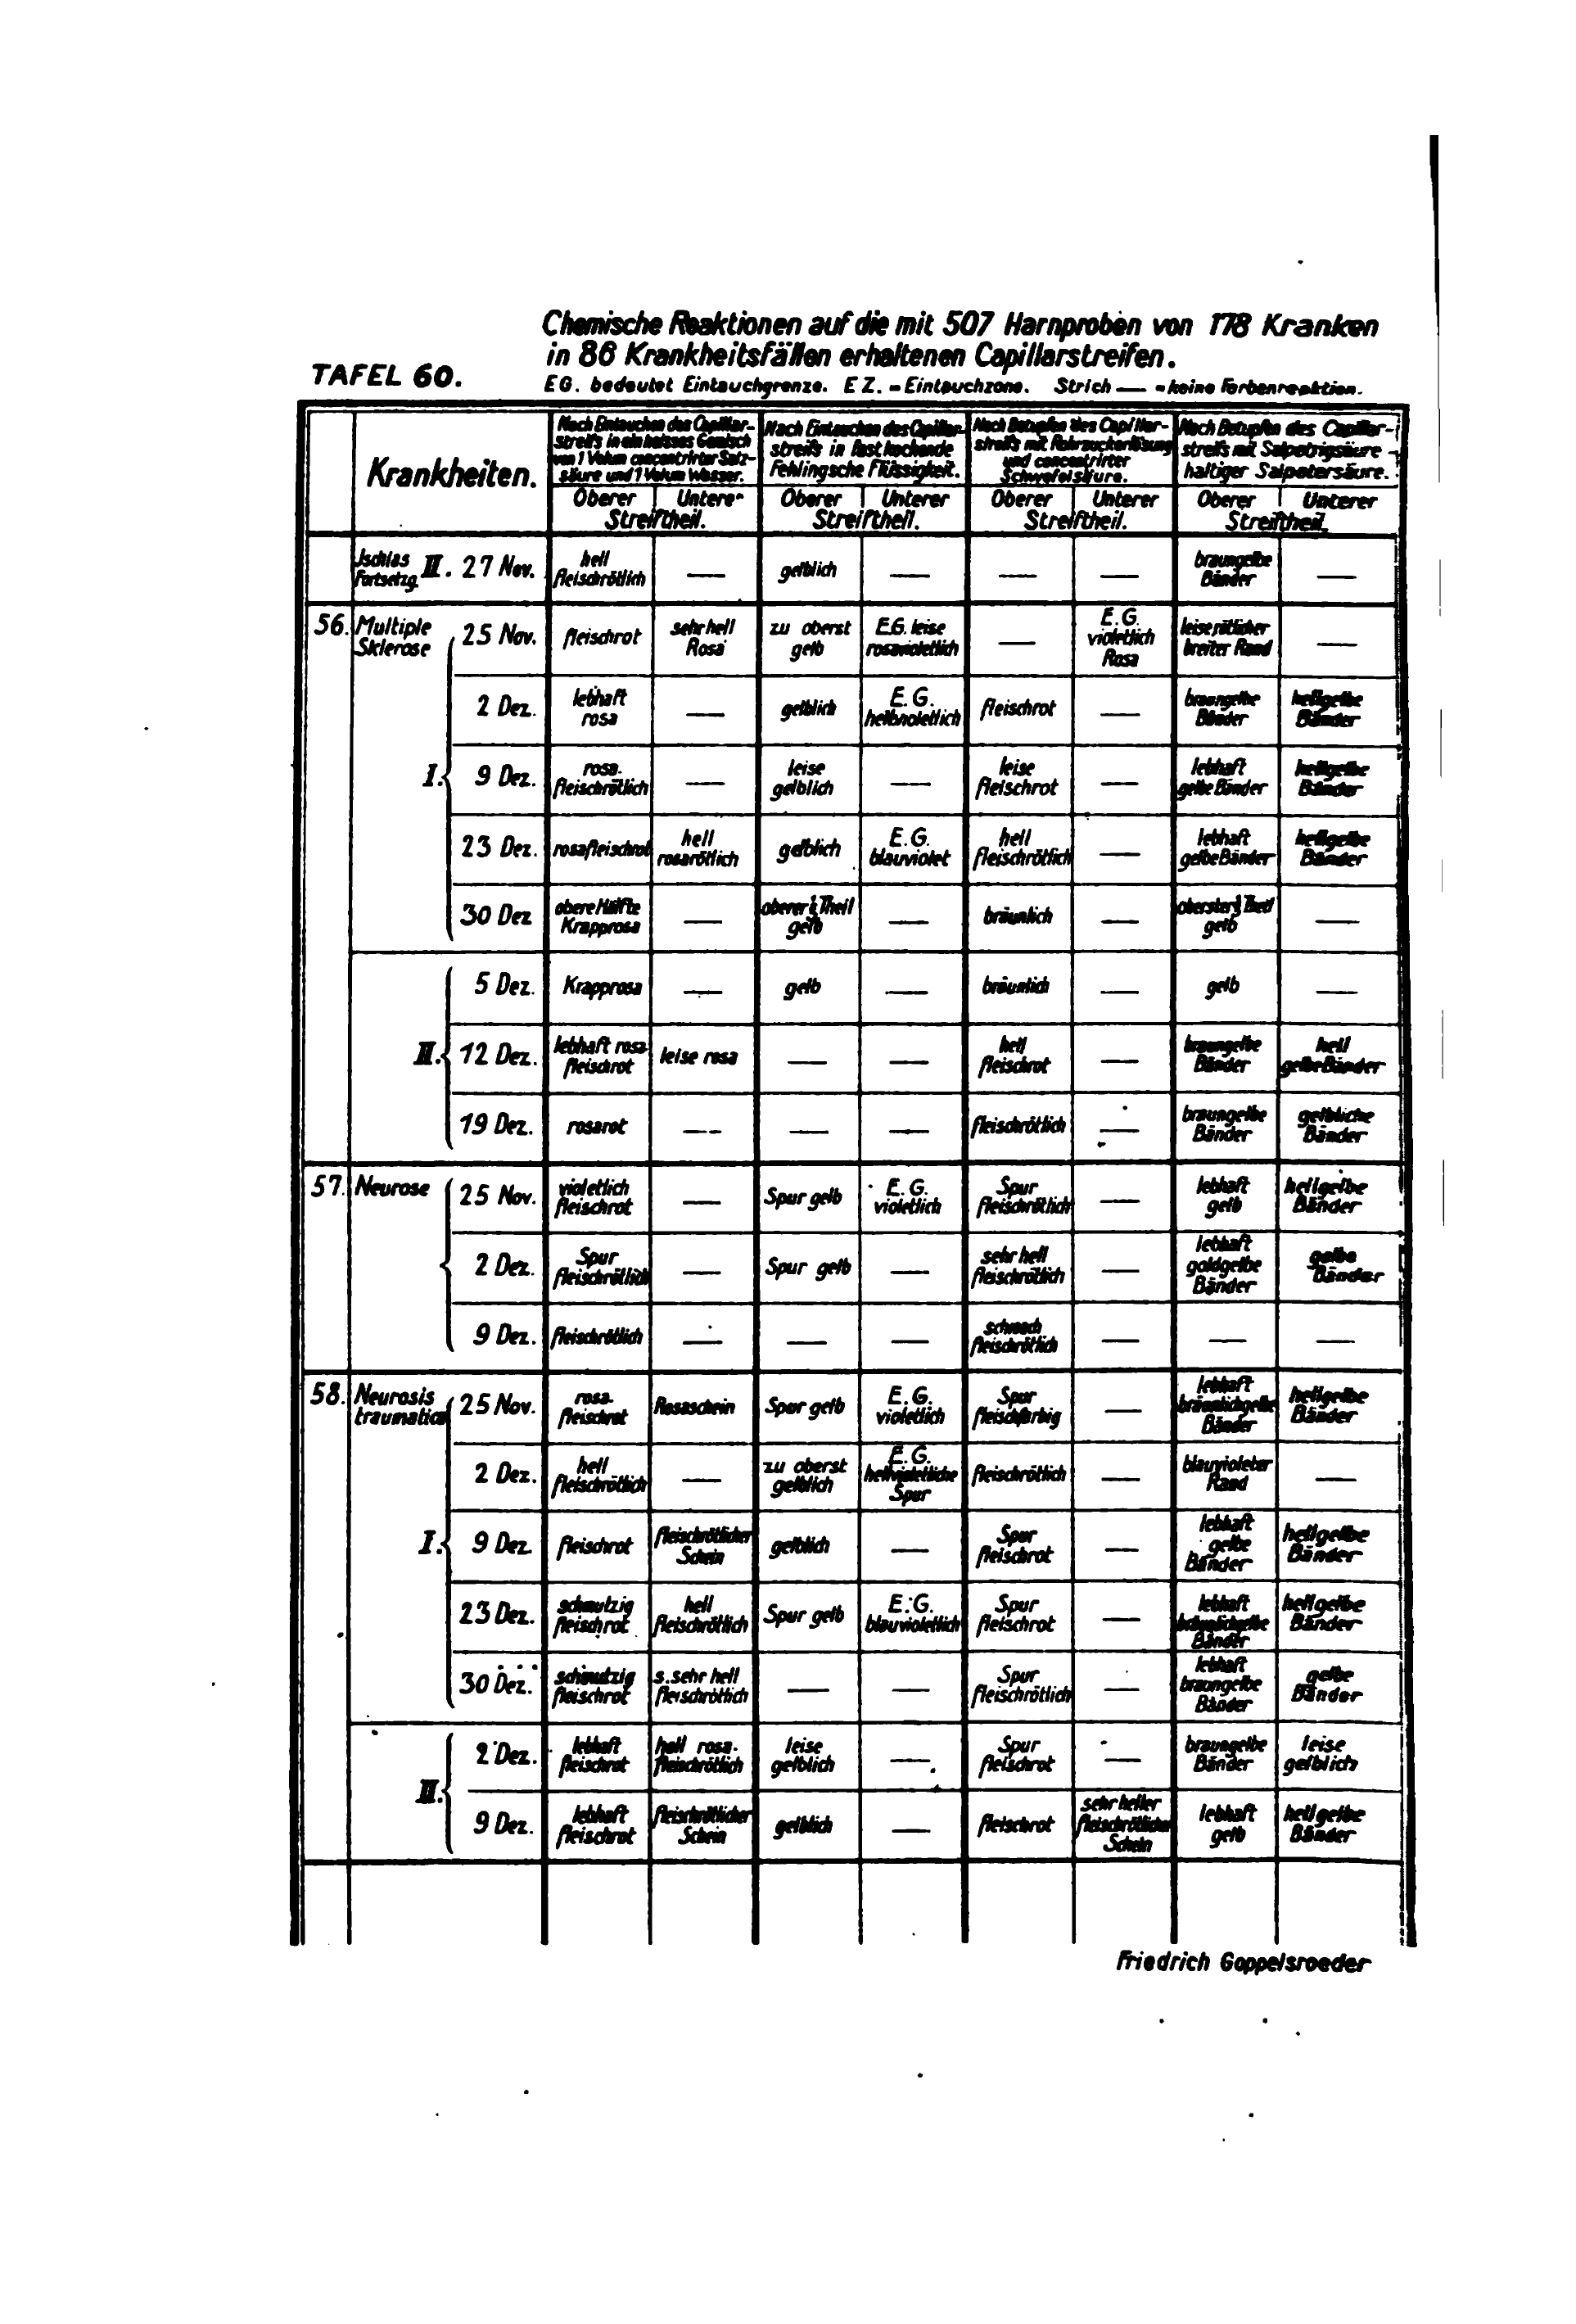 Chemische Reaktionen auf die mit 507 Harnproben von 178 Kranken
in 86 Krankheitsfällen erhaltenen Capillarstreifen.
TAFEL 60.
E G. bedeutet Eintauchgrenze. E Z. = Eintauchzone. Strich — = keine Farbenreaktion.
Krankheiten.
Nach Eintauchen des Capillar-
streifs in ein heisses Gemisch
von 1 Volum concentrirter Salz-
säure und 1 Volum Wasser.
Nach Eintauchen des Capillar-
streifs in fast kochende
Fehlingsche Flüssigkeit.
Nach Betupfen des Capillar-
streifs mit Rohrzuckerlösung
und concentrirter
Schwefelsäure.
Nach Betupfen des Capillar-
streifs mit Salpetrigsäure -
haltiger Salpetersäure.
Oberer Unterer Oberer Unterer Oberer Unterer Oberer Unterer
Streiftheil. Streiftheil. Streiftheil. Streiftheil.
Ischias Fortsetzg. II. 27 Nov. hell fleischrötlich — gelblich — — — braungelbe Bänder —
56. Multiple Sklerose I. 25 Nov. fleischrot sehr hell Rosa zu oberst gelb E.G. leise rosaviolettlich — E.G. violettlich Rosa leise rötlicher breiter Rand —
2 Dez. lebhaft rosa — gelblich E.G. hellviolettlich fleischrot — braungelbe Bänder hellgelbe Bänder
9 Dez. rosa- fleischrötlich — leise gelblich — leise fleischrot — lebhaft gelbe Bänder hellgelbe Bänder
23 Dez. rosafleischrot hell rosarötlich gelblich E.G. blauviolet hell fleischrötlich — lebhaft gelbe Bänder hellgelbe Bänder
30 Dez obere Hälfte Krapprosa — oberer Theil gelb — bräunlich — oberster Theil gelb —
II. 5 Dez. Krapprosa — gelb — bräunlich — gelb —
12 Dez. lebhaft rosa- fleischrot leise rosa — — hell fleischrot — braungelbe Bänder hell gelbe Bänder
19 Dez. rosarot — — — fleischrötlich — braungelbe Bänder gelbliche Bänder
57. Neurose 25 Nov. violettlich fleischrot — Spur gelb E.G. violettlich Spur fleischrötlich — lebhaft gelb hellgelbe Bänder
2 Dez. Spur fleischrötlich — Spur gelb — sehr hell fleischrötlich — lebhaft goldgelbe Bänder gelbe Bänder
9 Dez. fleischrötlich — — — schwach fleischrötlich — — —
58. Neurosis traumatica I. 25 Nov. rosa- fleischrot Rosaschein Spur gelb E.G. violettlich Spur fleischfarbig — lebhaft bräunlichgelbe Bänder hellgelbe Bänder
2 Dez. hell fleischrötlich — zu oberst gelblich E.G. hellviolettliche Spur fleischrötlich — blauvioleter Rand —
9 Dez. fleischrot fleischrötlicher Schein gelblich — Spur fleischrot — lebhaft gelbe Bänder hellgelbe Bänder
23 Dez. schmutzig fleischrot hell fleischrötlich Spur gelb E.G. blauviolettlich Spur fleischrot — lebhaft bräunlichgelbe Bänder hellgelbe Bänder
30 Dez. schmutzig fleischrot s. sehr hell fleischrötlich — — Spur fleischrötlich — lebhaft braungelbe Bänder gelbe Bänder
II. 2 Dez. lebhaft fleischrot hell rosa- fleischrötlich leise gelblich — Spur fleischrot — braungelbe Bänder leise gelblich
9 Dez. lebhaft fleischrot fleischrötlicher Schein gelblich — fleischrot sehr heller fleischrötlicher Schein lebhaft gelb hellgelbe Bänder
Friedrich Goppelsroeder